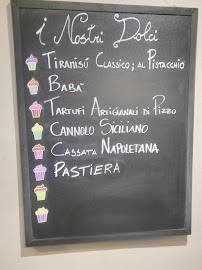 i Nostri Dolci
Tiranisú Classico; al Pistacchio
Babà
Tartufi Artigianali di Pizzo
Cannolo Siciliano
Cassata Napoletana
Pastiera